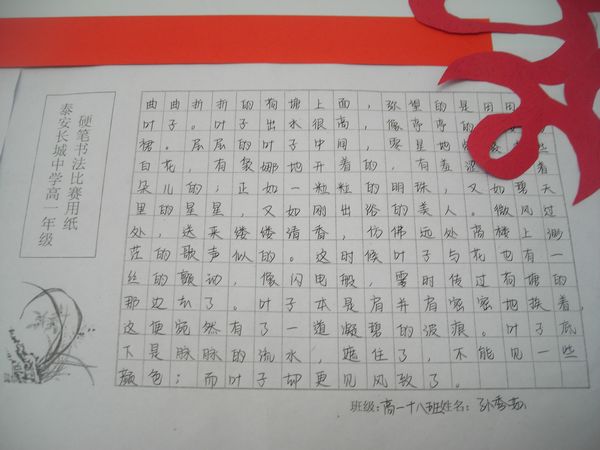 硬笔书法比赛用纸
泰安长城中学高一年级
曲曲折折的荷塘上面，弥望的是田田
叶子。叶子出水很高，像亭亭的
裙。层层的叶子中间，零星地些
白花，有袅娜地开着的，有羞涩着
朵儿的；正如一粒粒的明珠，又如碧天
里的星星，又如刚出浴的美人。微风过
处，送来缕缕清香，仿佛远处高楼上渺
茫的歌声似的。这时候叶子与花也有一
丝的颤动，像闪电般，霎时传过荷塘的
那边去了。叶子本是肩并肩密密地挨着，
这便宛然有了一道凝碧的波痕。叶子底
下是脉脉的流水，遮住了，不能见一些
颜色；而叶子却更见风致了。
班级：高一十八班姓名：孙